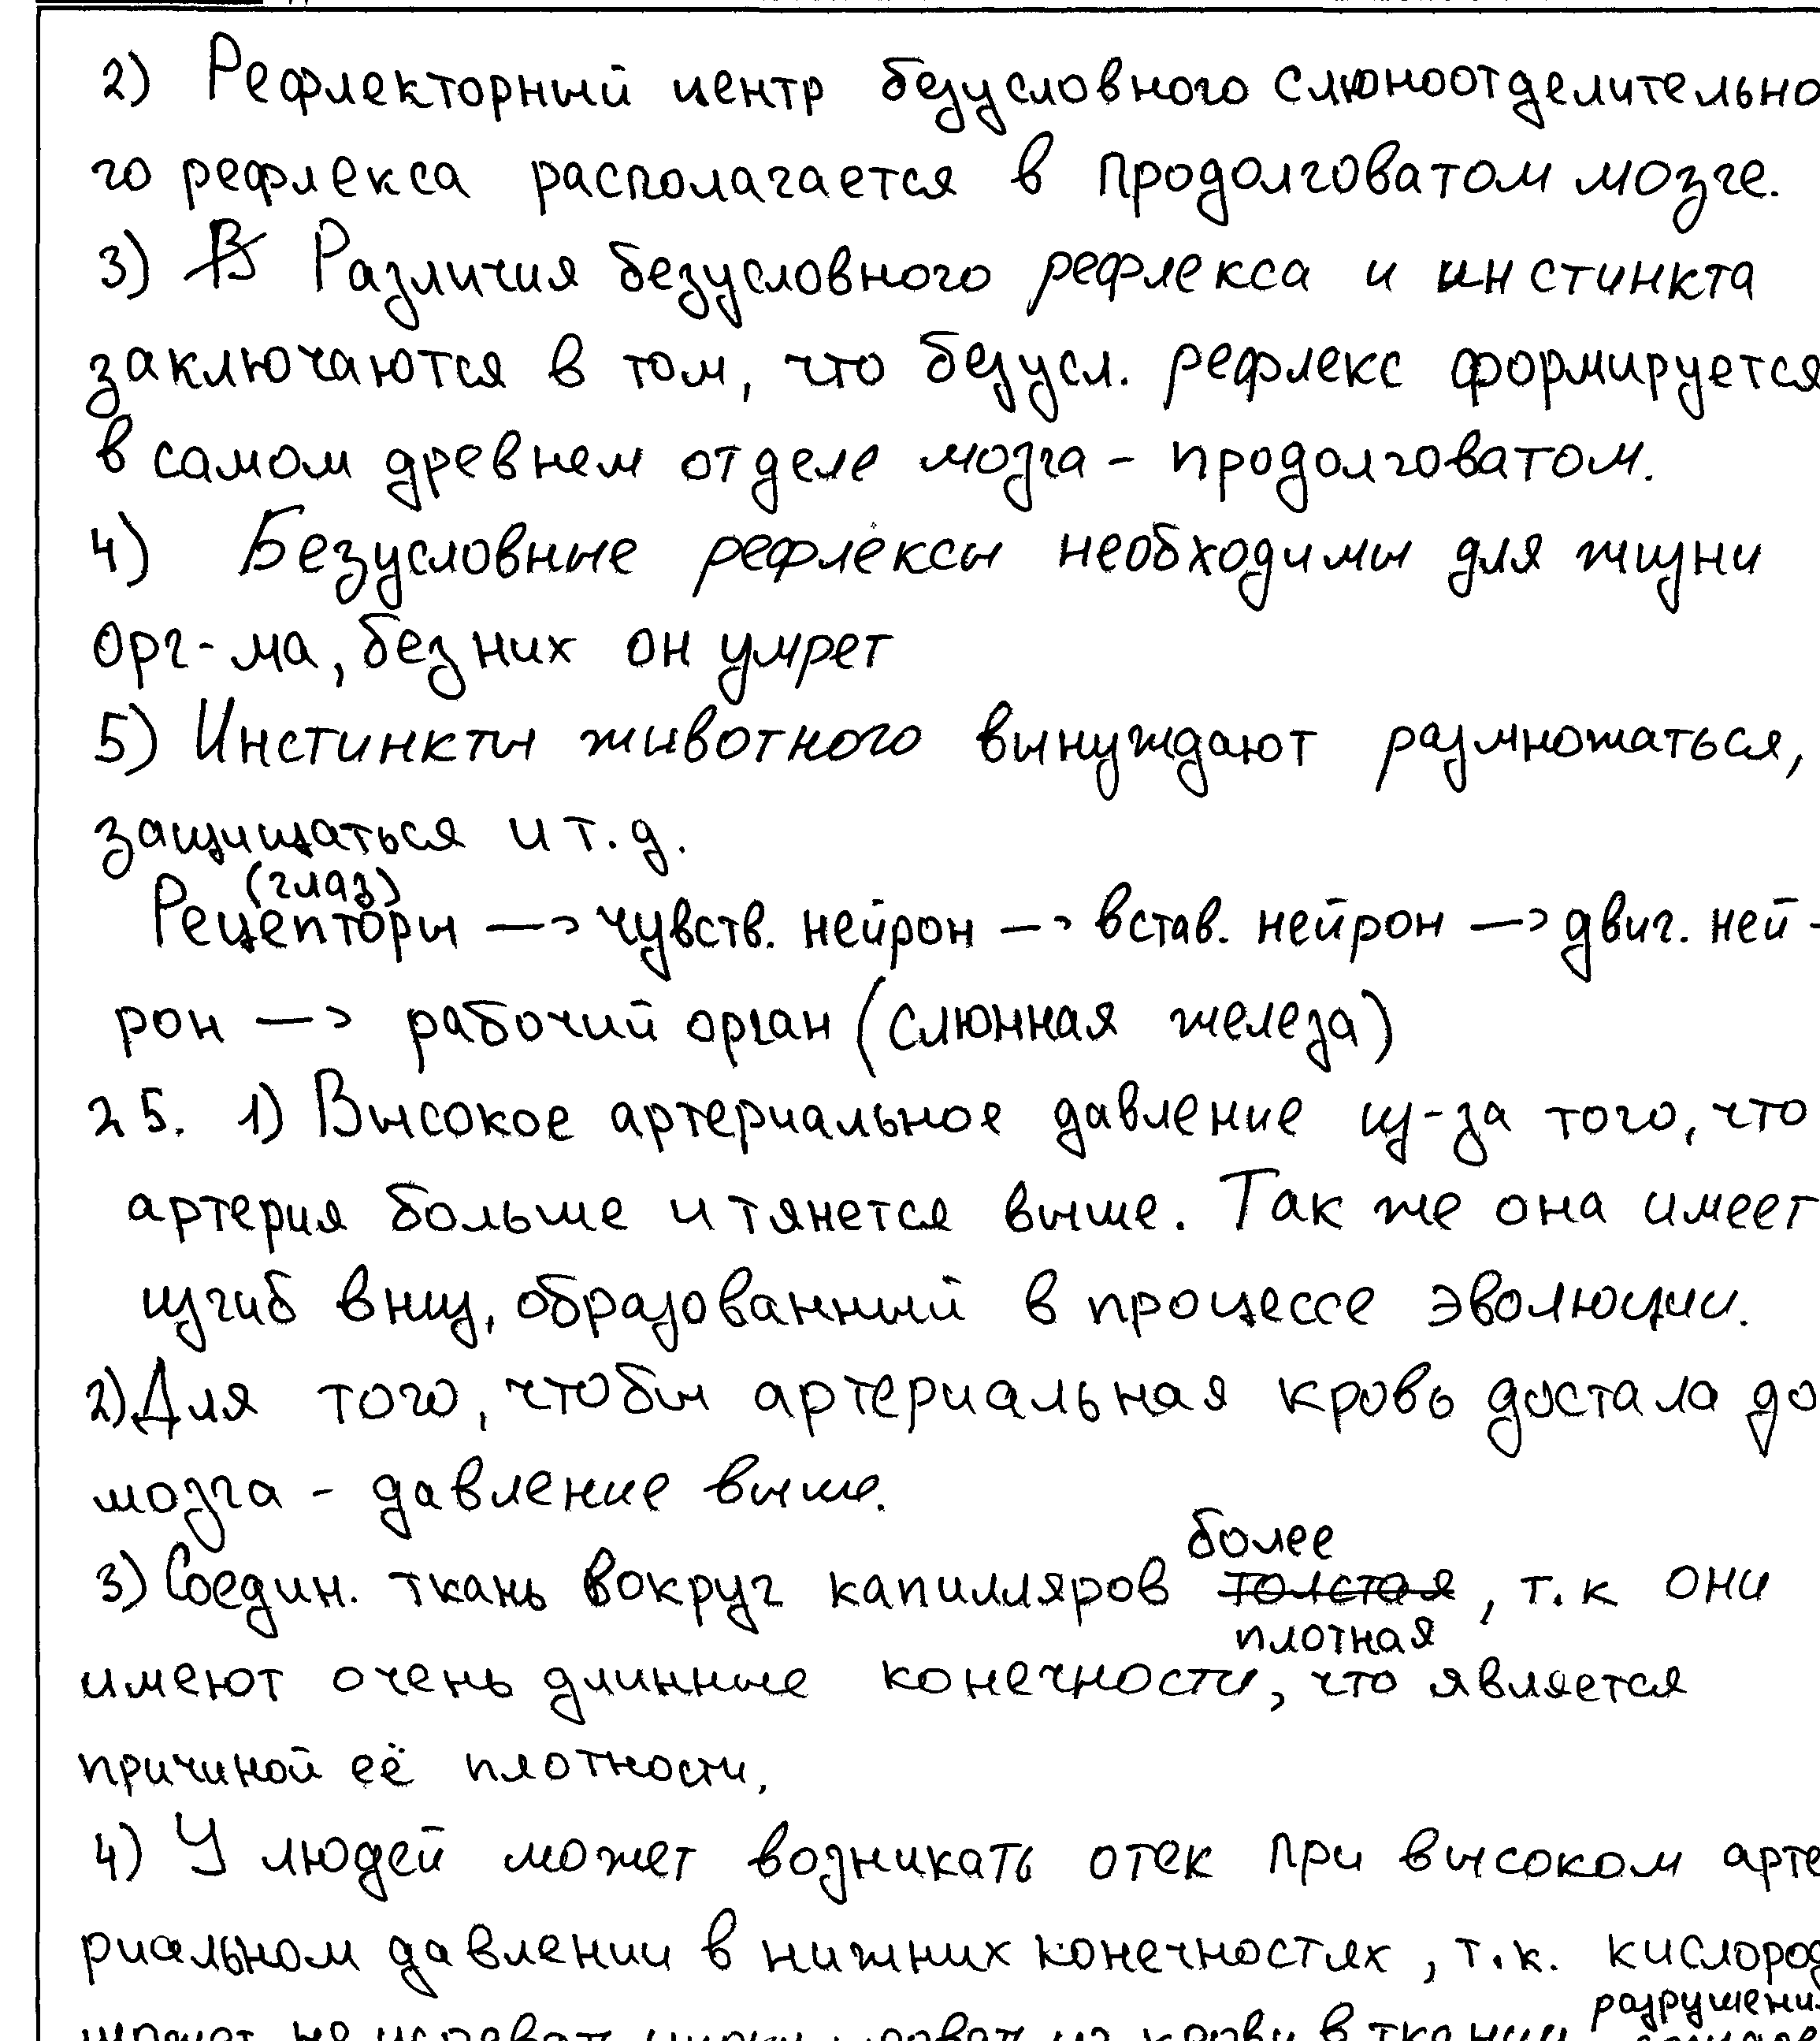 2) Рефлекторный центр безусловного слюноотделительно
го рефлекса располагается в продолговатом мозге.
3) В Различия безусловного рефлекса и инстинкта
заключаются в том, что безусл. рефлекс формируется
в самом древнем отделе мозга - продолговатом.
4) Безусловные рефлексы необходимы для жизни
орг-ма, без них он умрет
5) Инстинкты животного вынуждают размножаться,
защищаться и т.д.
(глаз)
Рецепторы —> чувств. нейрон —> встав. нейрон —> двиг. ней-
рон —> рабочий орган (слюнная железа)
25. 1) Высокое артериальное давление из-за того, что
артерия больше и тянется выше. Так же она имеет
изгиб вниз, образованный в процессе эволюции.
2) Для того, чтобы артериальная кровь достала до
мозга - давление выше.
более
3) Соедин. ткань вокруг капилляров толстая, т.к они
плотная
имеют очень длинные конечности, что является
причиной её плотности.
4) У людей может возникать отек при высоком арте
риальном давлении в нижних конечностях, т.к. кислород
разрушени
может не успевать из крови в ткани